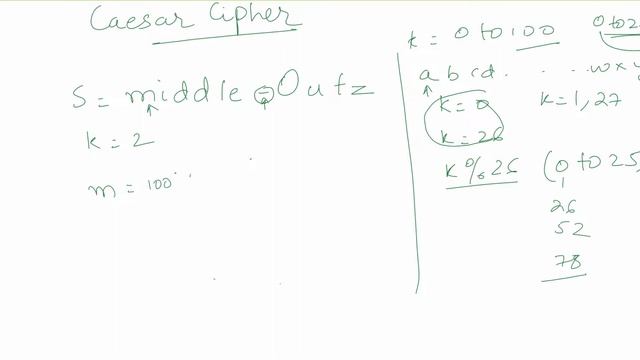 Caesar Cipher
S = middle-Outz
k = 2
m = 100
k = 0 to 100
0 to 2
a b c d . . . . w x y
k = 0
k = 1, 27
k = 26
k % 26 (0 to 25
26
52
78